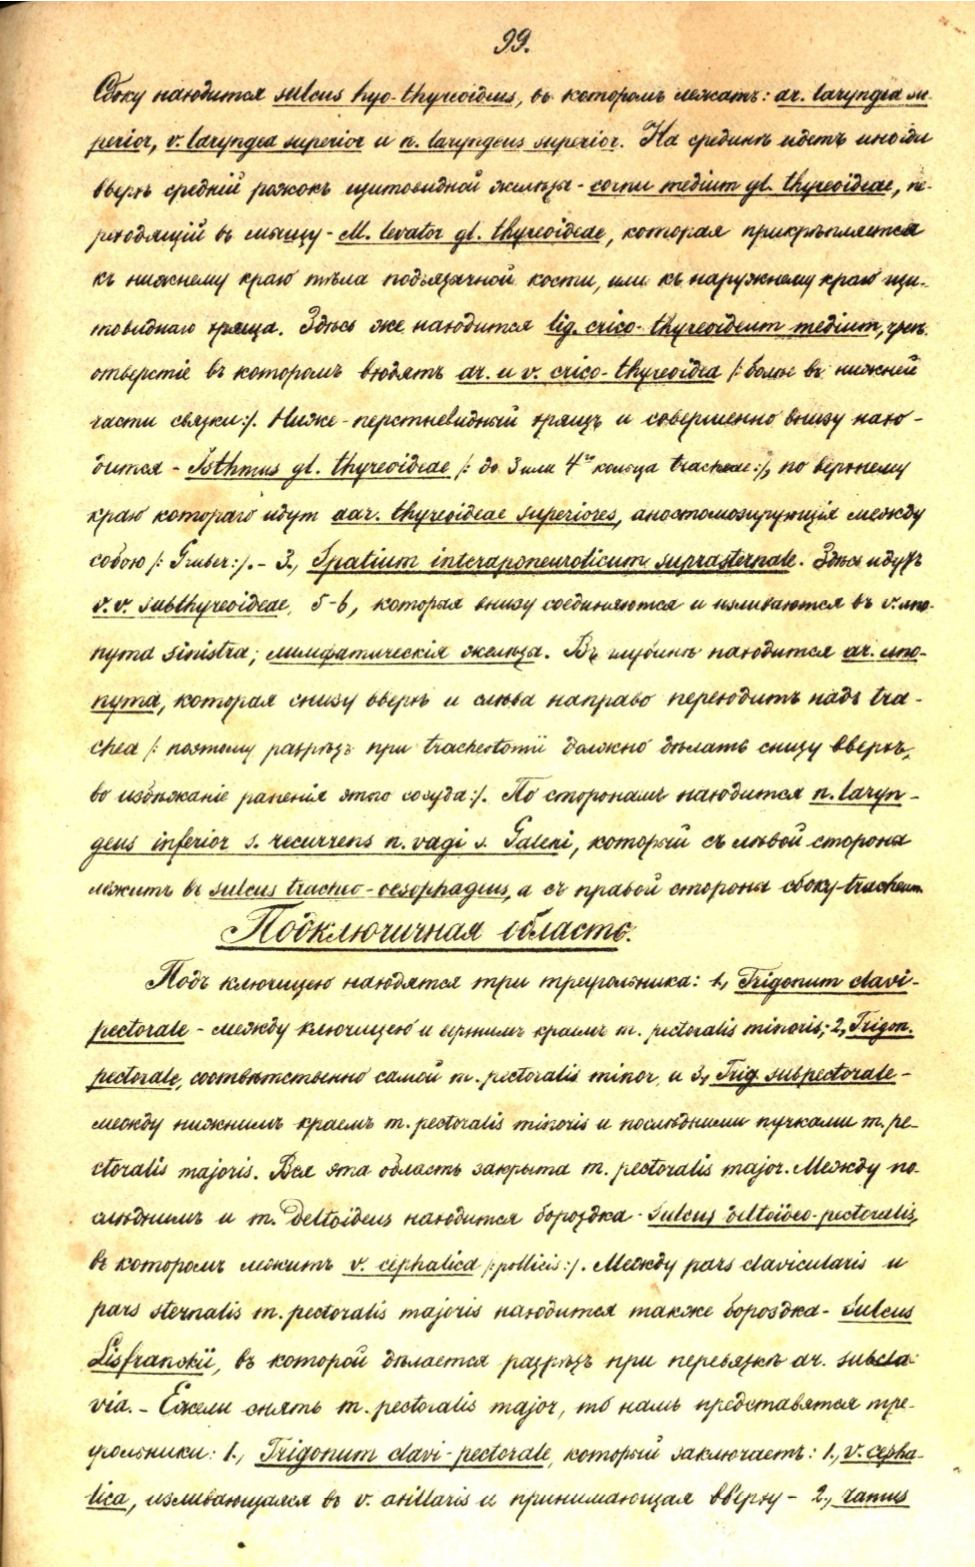 99.
Сбоку находится sulcus hyo-thyreoideus, въ которомъ лежатъ: ar. laryngea su-
perior, v. laryngea superior и n. laryngeus superior. На срединѣ идетъ иногда
вверхъ средній рожокъ щитовидной железы - cornu medium gl. thyreoideae, пе-
реходящій въ мышцу - M. levator gl. thyreoideae, которая прикрѣпляется
къ нижнему краю тѣла подъязычной кости, или къ наружнему краю щи-
товиднаго хряща. Здѣсь же находится lig. crico-thyreoideum medium, чрезъ
отверстіе въ которомъ входятъ ar. и v. crico-thyreoidea /: болѣе въ нижней
части связки :/. Ниже - перстневидный хрящъ и совершенно внизу нахо-
дится - Isthmus gl. thyreoideae /: до 3 или 4го кольца tracheae :/, по верхнему
краю котораго идут aar. thyreoideae superiores, анастомозирующія между
собою /: Gruber :/. - 3, Spatium interaponeuroticum suprasternale. Здѣсь идутъ
v. v. subthyreoideae, 5-6, которыя внизу соединяются и изливаются въ v. ano-
nyma sinistra; лимфатическія железы. Въ глубинѣ находится ar. ano-
nyma, которая снизу вверхъ и слѣва направо переходитъ надъ tra-
chea /: поэтому разрѣзъ при tracheotomii должно дѣлать снизу вверхъ,
во избѣжаніе раненія этого сосуда :/. По сторонамъ находится n. laryn-
geus inferior s. recurrens n. vagi s. Galeni, который съ лѣвой стороны
лежитъ въ sulcus tracheo-oesophageus, а съ правой стороны сбоку tracheum.
Подключичная область.
Подъ ключицею находятся три треугольника: 1, Trigonum clavi-
pectorale - между ключицею и верхнимъ краемъ m. pectoralis minoris; 2, Trigon.
pectorale, соотвѣтственно самой m. pectoralis minor, и 3, Trig. subpectorale -
между нижнимъ краемъ m. pectoralis minoris и послѣдними пучками m. pe-
ctoralis majoris. Вся эта область закрыта m. pectoralis major. Между по-
слѣднимъ и m. deltoideus находится бороздка - Sulcus deltoideo-pectoralis,
въ которомъ лежитъ v. cephalica /: pollicis :/. Между pars clavicularis и
pars sternalis m. pectoralis majoris находится также бороздка - Sulcus
Lisfrankii, въ которой дѣлается разрѣзъ при перевязкѣ ar. subcla-
via. - Ежели снять m. pectoralis major, то намъ представятся тре-
угольники: 1., Trigonum clavi-pectorale, который заключаетъ: 1, v. cepha-
lica, изливающаяся въ v. axillaris и принимающая вверху - 2, ramus